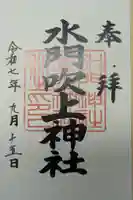 奉拝
水門吹上神社
令和七年 九月十五日